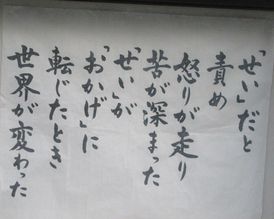 「せい」だと
責め
怒りが走り
苦が深まった
「せい」が
「おかげ」に
転じたとき
世界が変わった